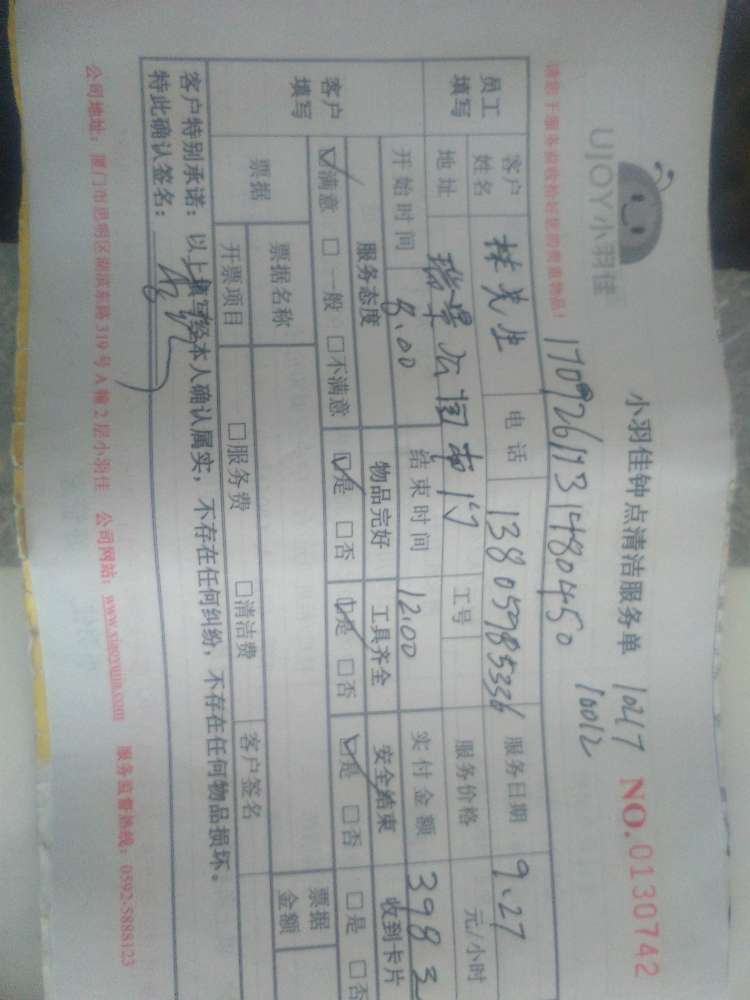 UJOY小羽佳
小羽佳钟点清洁服务单 1047 NO.0130742
10012
请您于服务前收拾好您的贵重物品!
员工填写 客户姓名 林先生 电话 13805985336 服务日期 9.27
地址 瑞景公园 工号 服务价格 元/小时
开始时间 8.00 结束时间 12.00 实付金额 398
客户填写 服务态度 物品完好 工具齐全 安全结束 收到卡片
☑满意 □一般 □不满意 ☑是 □否 ☑是 □否 ☑是 □否 □是 □否
票据 票据名称 客户签名 票据金额
开票项目 □服务费 □清洁费
客户特别承诺:以上填写经本人确认属实,不存在任何纠纷,不存在任何物品损坏。
特此确认签名:
公司地址:厦门市思明区湖滨东路319号A幢2层小羽佳 公司网站:www.xiaoyujia.com 服务监督热线:0592-5888123